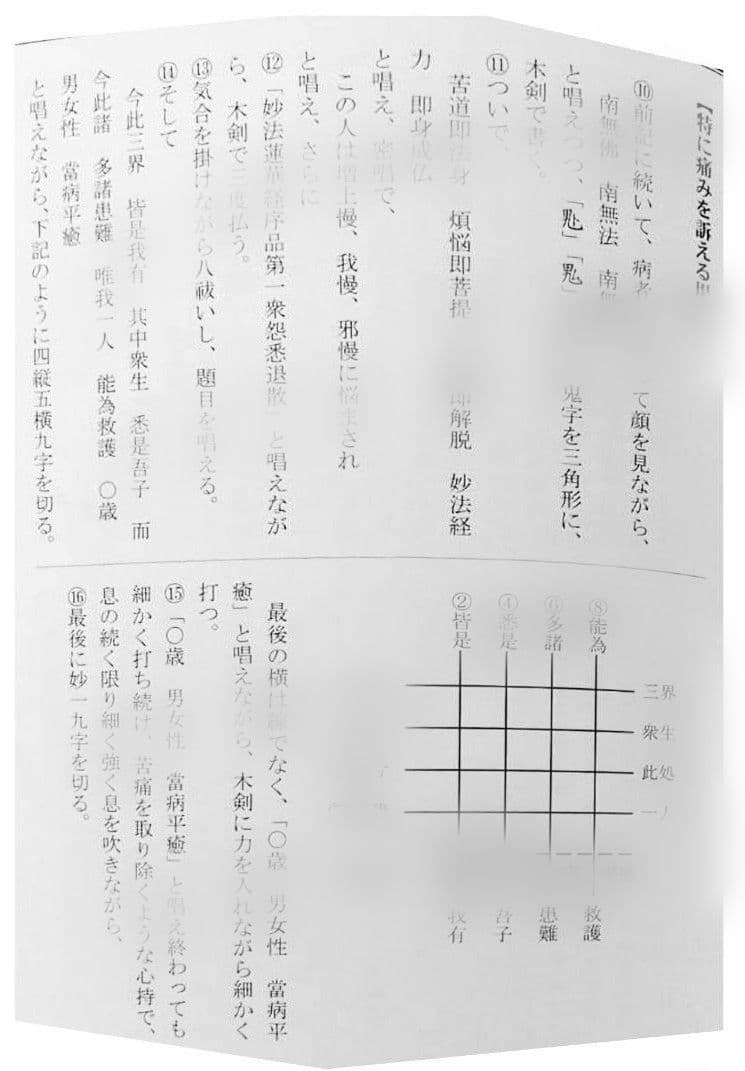 【特に痛みを訴える
⑩前記に続いて、病者 て顔を見ながら、
南無佛 南無法 南無
と唱えつつ、「 」「 」 鬼字を三角形に、
木剣で書く。
⑪ついで、
苦道即法身 煩悩即菩提 即解脱 妙法経
力 即身成仏
と唱え、密唱で、
この人は増上慢、我慢、邪慢に悩まされ
と唱え、さらに
⑫「妙法蓮華経序品第一衆怨悉退散 と唱えなが
ら、木剣で三度払う。
⑬気合を掛けながら八祓いし、題目を唱える。
⑭そして
今此三界 皆是我有 其中衆生 悉是吾子 而
今此諸 多諸患難 唯我一人 能為救護 〇歳
男女性 當病平癒
と唱えながら、下記のように四縦五横九字を切る。
⑧能為
⑥多諸
④悉是
②皆是
三界
衆生
此処
一人
救護
患難
吾子
我有
最後の横は線でなく、「〇歳 男女性 當病平
癒」と唱えながら、木剣に力を入れながら細かく
打つ。
⑮「〇歳 男女性 當病平癒」と唱え終わっても
細かく打ち続け、苦痛を取り除くような心持で、
息の続く限り細く強く息を吹きながら、
⑯最後に妙一九字を切る。